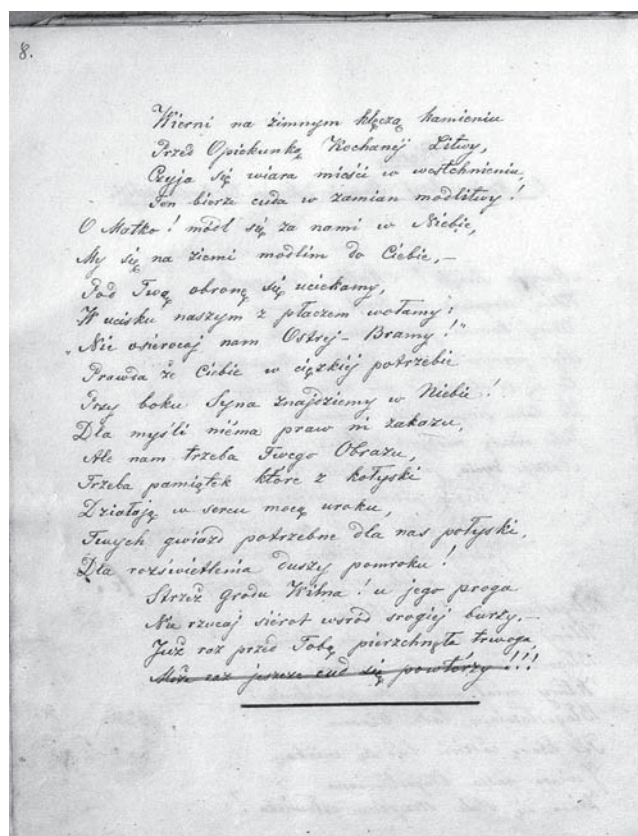 8.
Wierni na zimnym klęczą kamieniu
Przed Opiekunką Kochanéj Litwy,
Czyja się wiara mieści w westchnieniu,
Ten bierze cuda w zamian modlitwy!
O Matko! módl się za nami w Niebie,
My się na ziemi modlim do Ciebie,—
Pod Twą obronę się uciekamy,
W ucisku naszym z płaczem wołamy:
„Nie osierocaj nam Ostrej-Bramy!"
Prawda że Ciebie w ciężkiéj potrzebie
Przy boku Syna znajdziemy w Niebie!
Dla myśli niéma praw ni zakazu,
Ale nam trzeba Twego Obrazu,
Trzeba pamiątek które z kołyski
Działają w sercu mocą uroku,
Twych gwiazd potrzebne dla nas połyski,
Dla rozświetlenia duszy pomroku!
Strzeż grodu Wilna! u jego proga
Nie rzucaj siérot wśród srogiej burzy,—
Już raz przed Tobą pierzchnęła trwoga,
Może raz jeszcze cud się powtórzy!!!